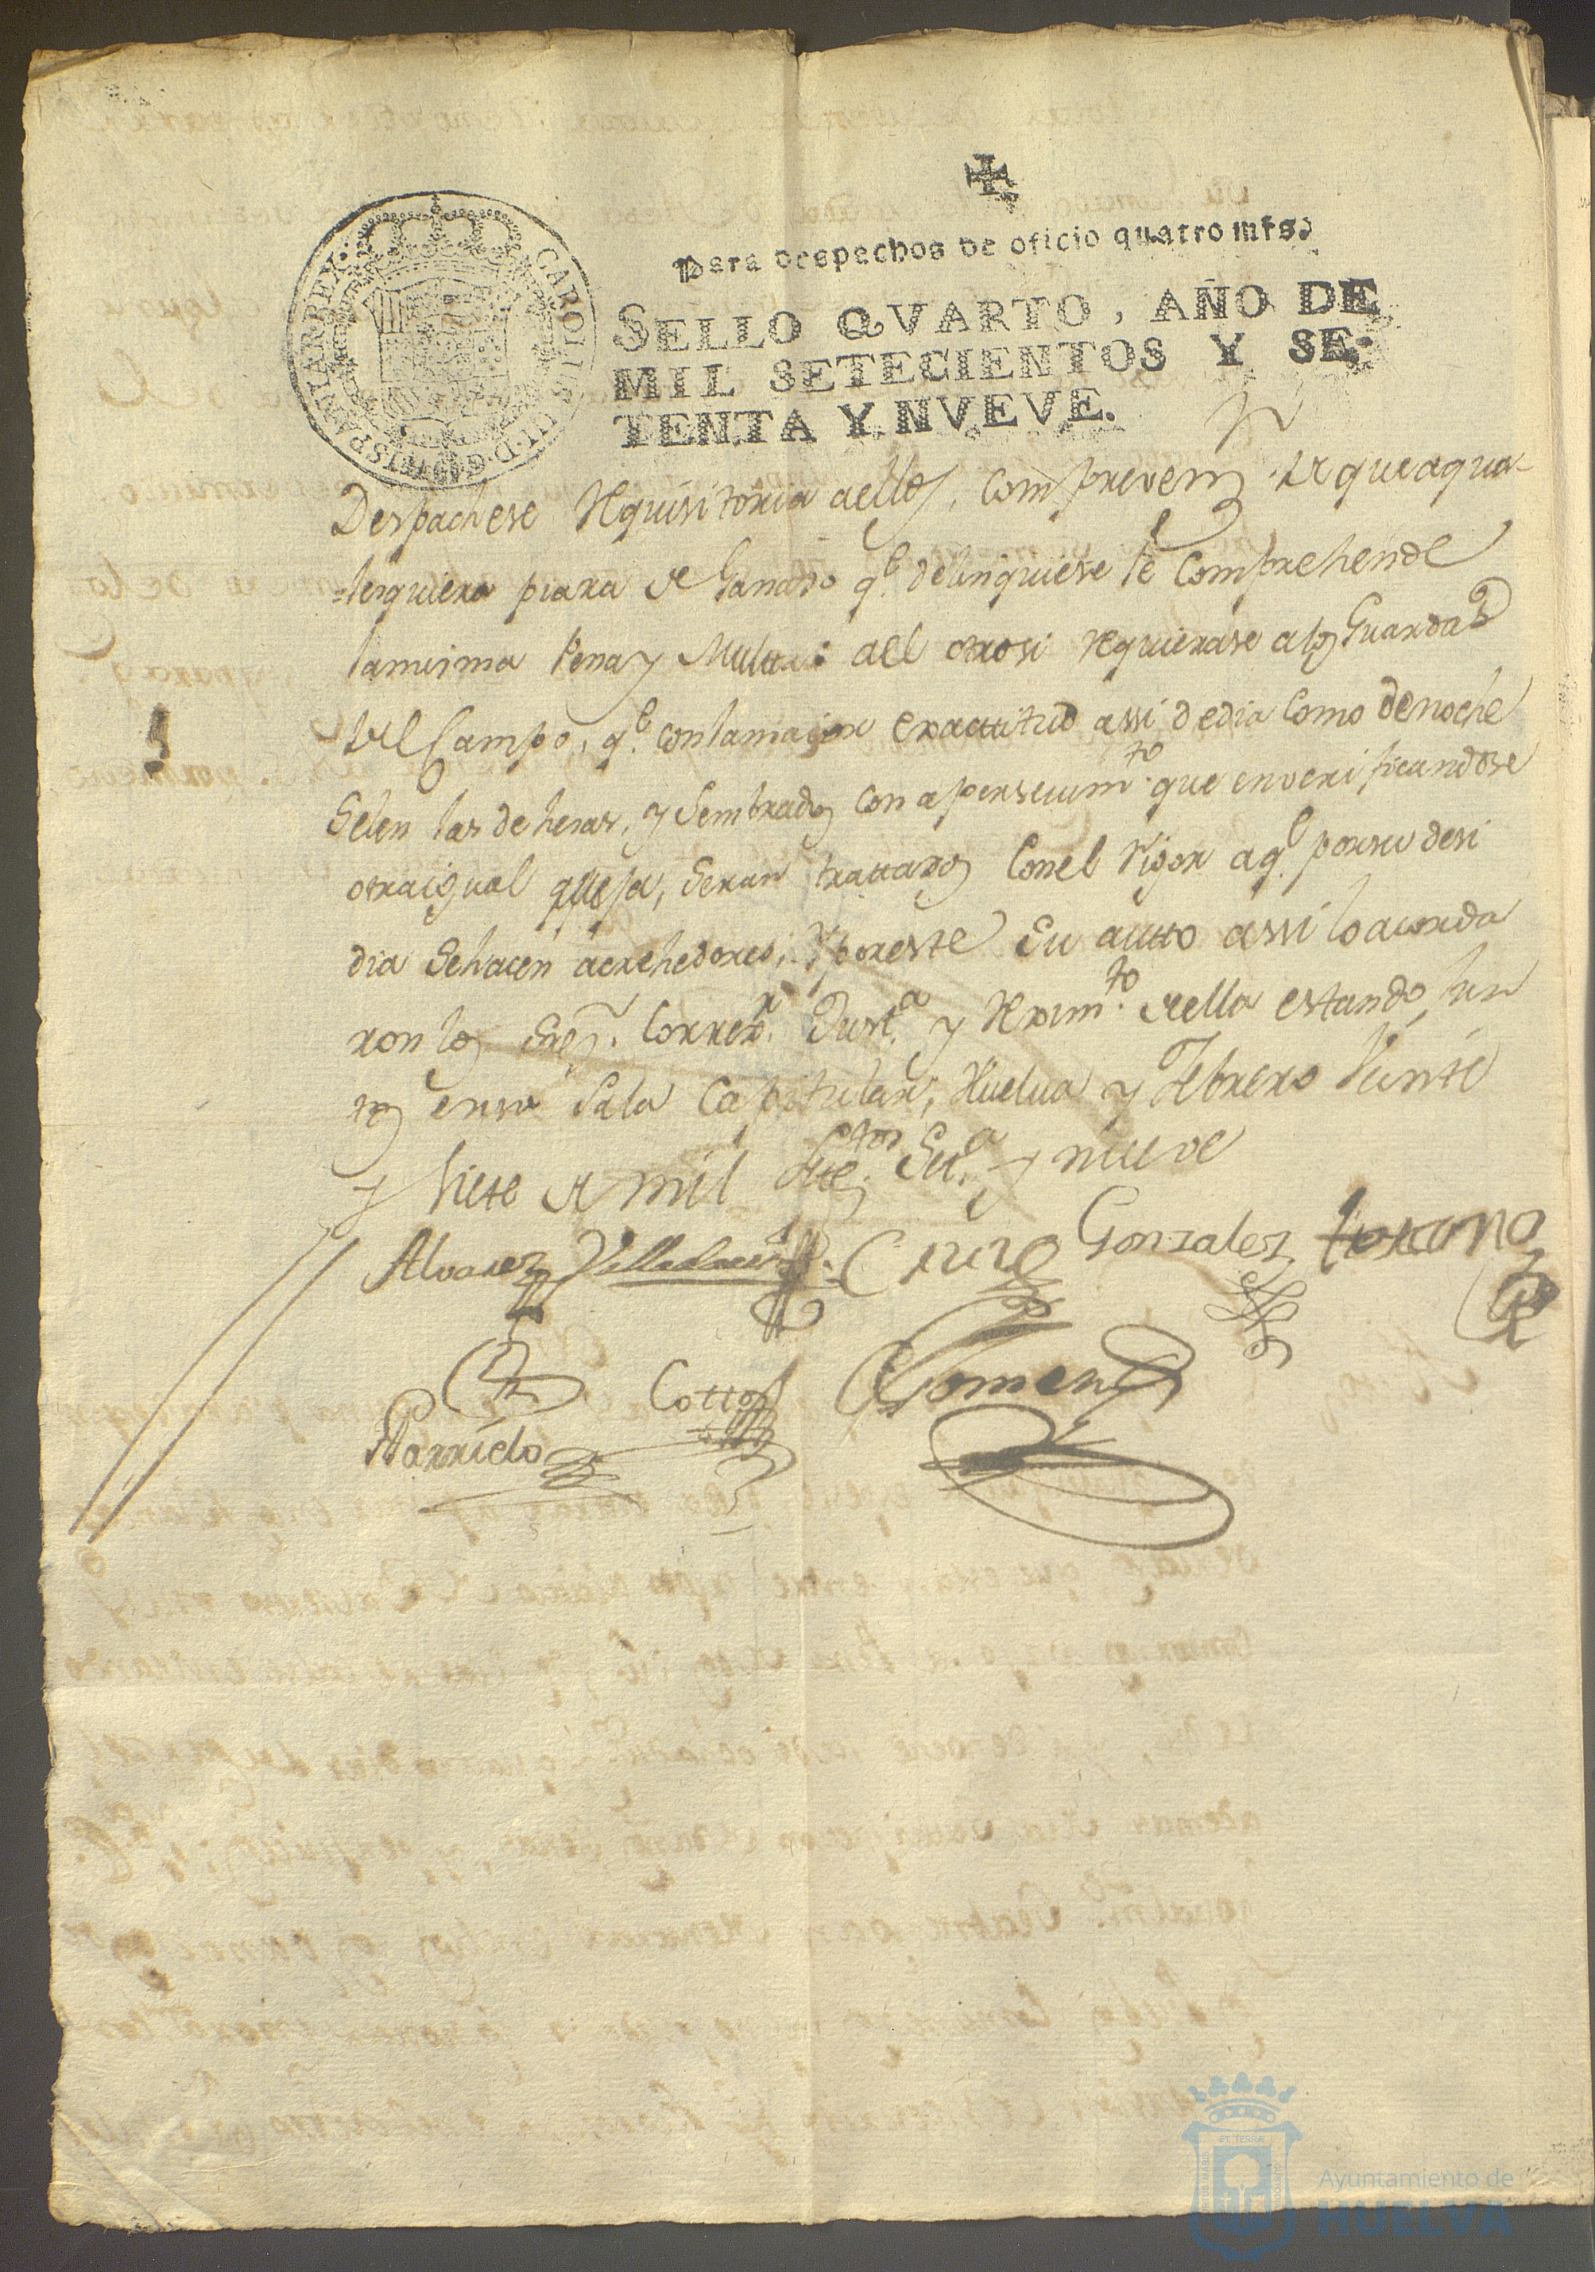 Para despachos de oficio quatro mrs.
SELLO QVARTO, AÑO DE
MIL SETECIENTOS Y SE-
TENTA Y NVEVE.
CAROLUS III D. G. HISPANIAR REX
Despachese Requisitoria aellos, com prevenn. de queaqua-
=lesquiera piara de Ganado qe. delinquiese le Comprehende
lamisma Pena y Multa: all otrosi Requierase alos Guardas
del Campo, qe. conlamaior exactitud assi dedia Como denoche
Selen las dehesas, y Sembrados con apersevimto. que enverificandose
otraigual quexa, Seran trattados Conel Rigor aqe. porsu desi
dia Sehacen acrehedores, Y poreste Su autto assi loacorda
ron los Sres. Correxr. Justa. y Reximto. della estando jun
tos ensu Sala Capitular, Huelua y Febrero Veinte
y Siete de mil Setetos. Seta. y nueve
Alvarez Cruzo Gonzalez Lozano
Cotto Gomez
Garrido
Ayuntamiento de
HUELVA